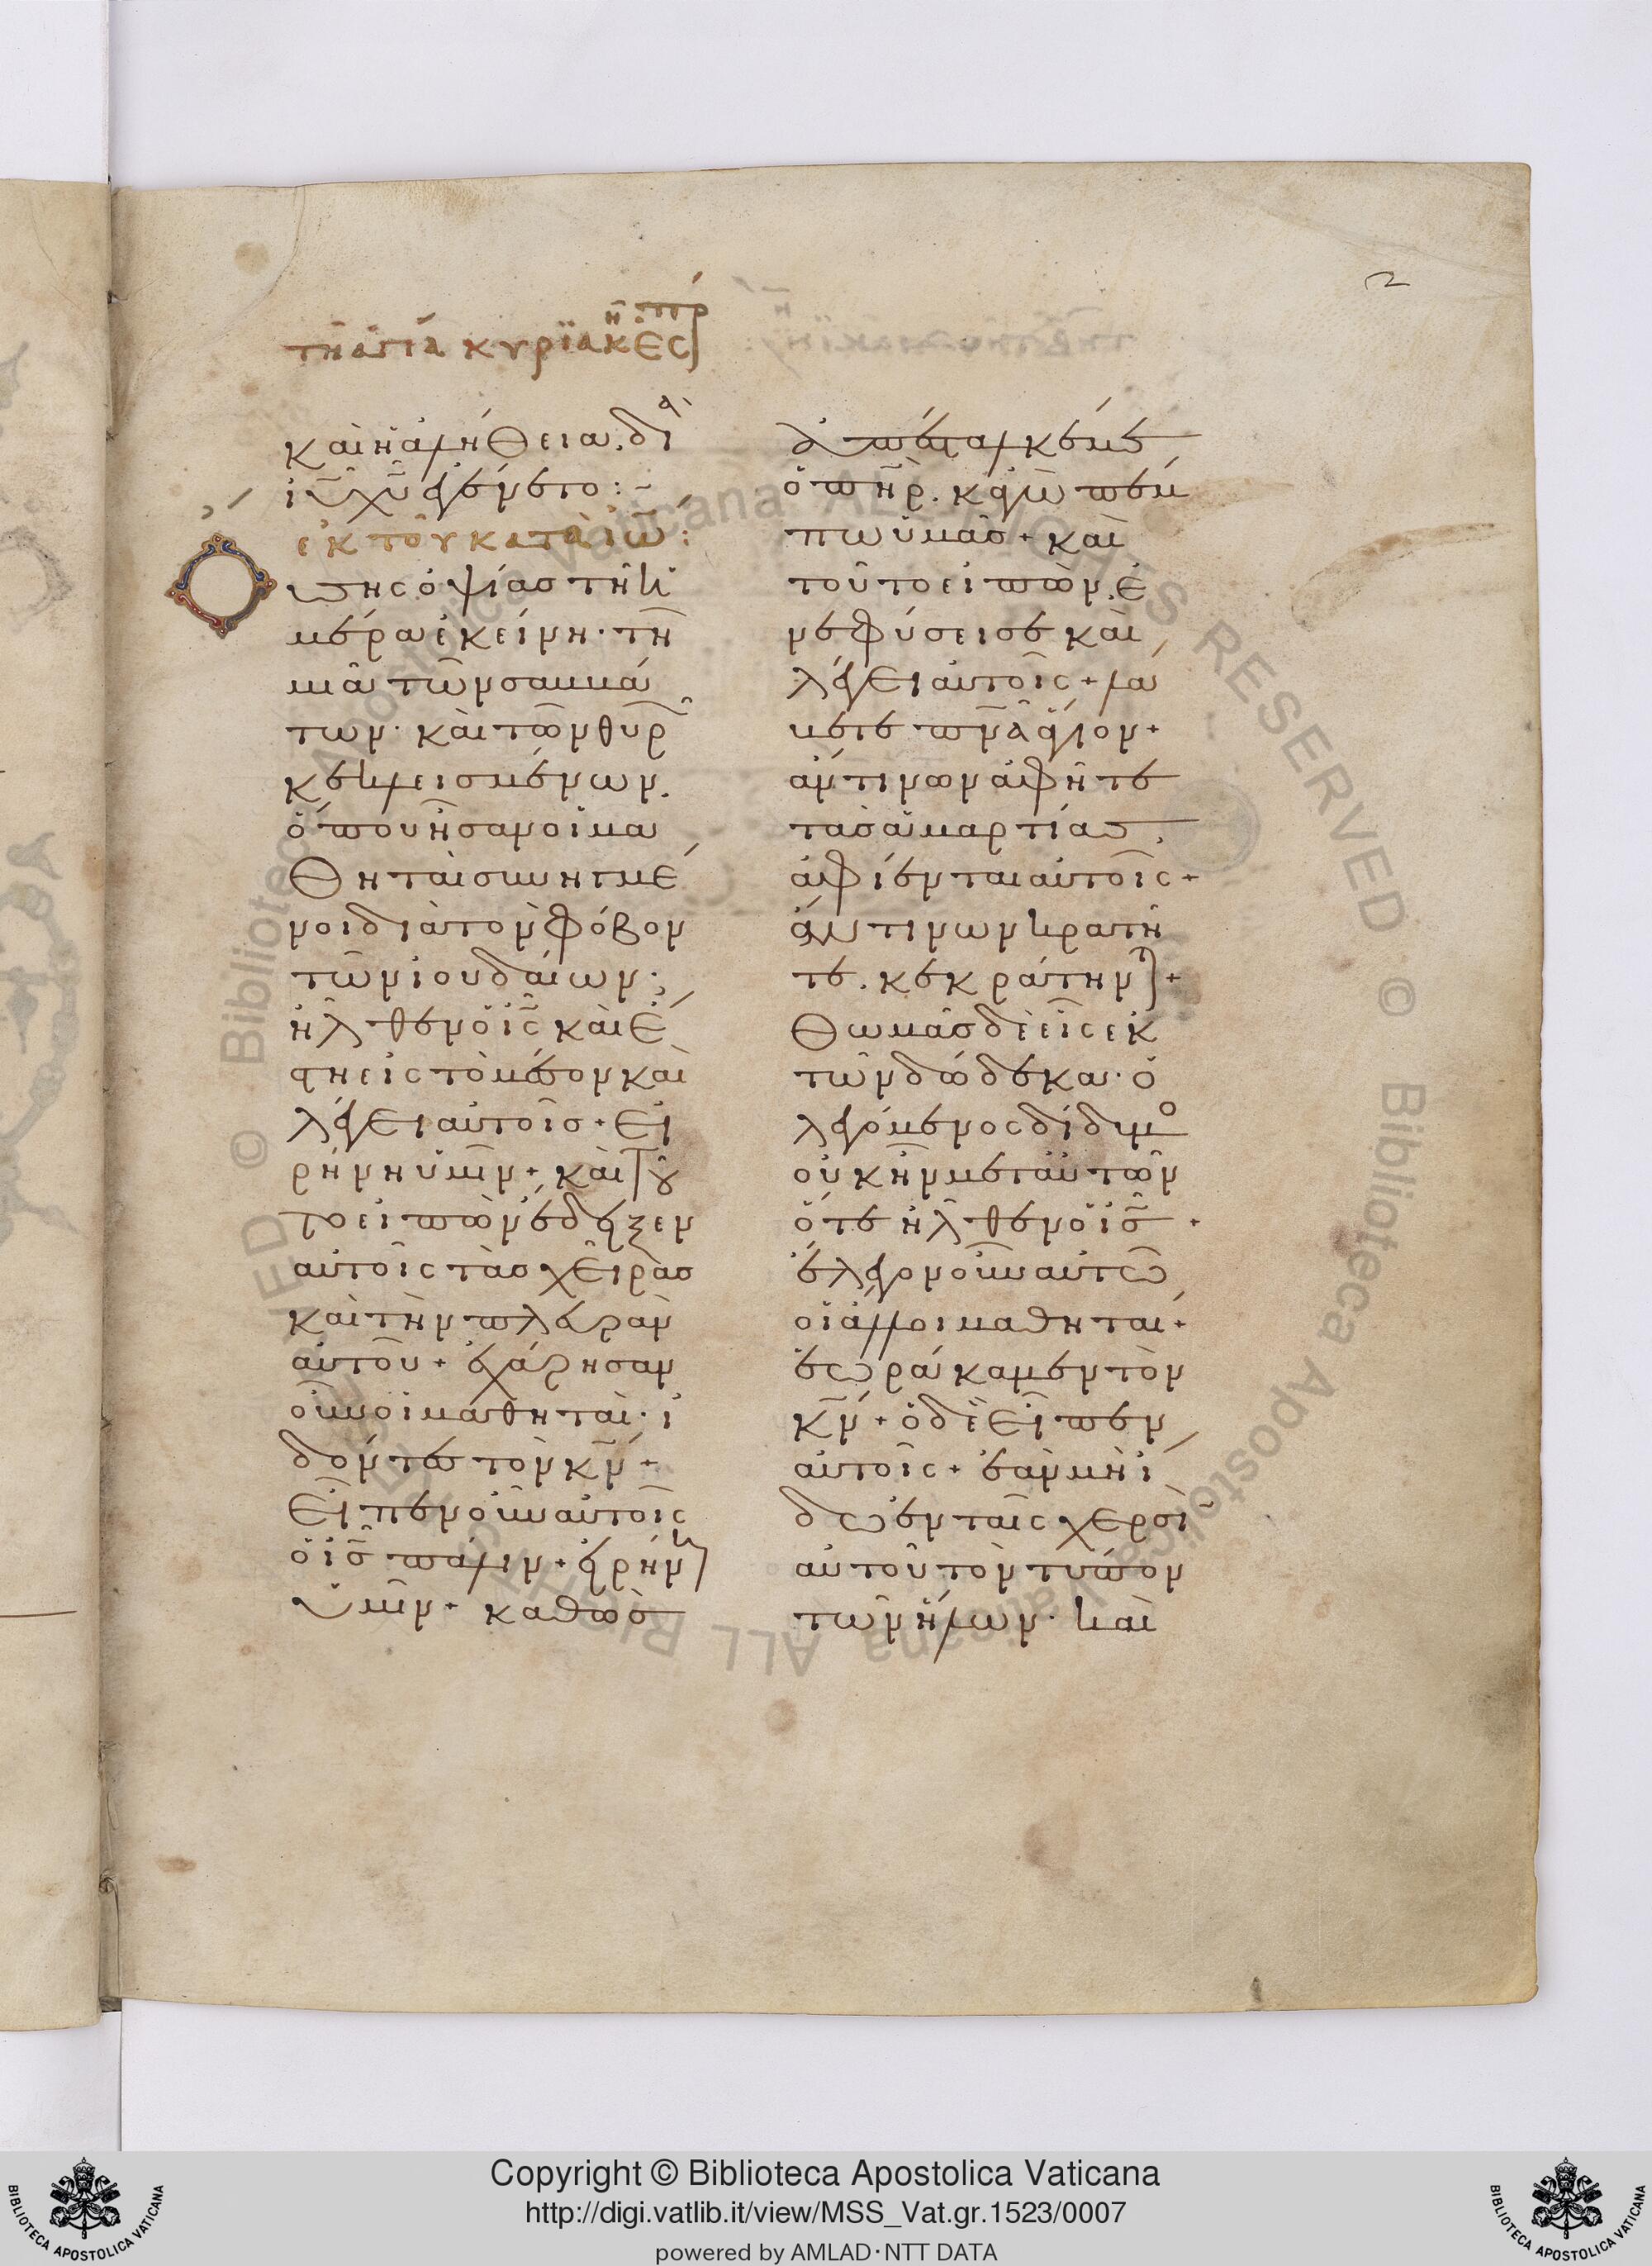 2
τῆ ἁγία κυρϊακῆ ἑσπρ
καὶ ἡ ἀλήθεια. δι
ιυ χυ ἐγένετο :~
ἐκ τοῦ κατὰ ιω :
Οὔσης ὀψίας τῆ ἡ
μέρα ἐκείνη· τῆ
μιᾶ τῶν σαββά
των· καὶ τῶν θυρ
κεκλεισμένων.
ὅπου ἦσαν οἱ μα
θηταὶ συνηγμέ
νοι διὰ τὸν φόβον
τῶν ἰουδαίων·
ἦλθεν ὁ ις καὶ ἔ
στη εἰς τὸ μέσον καὶ
λέγει αὐτοῖς + εἰ
ρήνη ὑμῖν + καὶ τοῦ
το εἰπὼν ἔδειξεν
αὐτοῖς τὰς χεῖρας
καὶ τὴν πλευρὰν
αὐτοῦ + ἐχάρησαν
οὖν οἱ μαθηταὶ· ἰ
δόντες τὸν κν +
εἶπεν οὖν αὐτοῖς
ὁ ις πάλιν + εἰρήνη
ὑμῖν + καθὼς
ἀπέσταλκέ με
ὁ πηρ. κἀγὼ πέμ
πω ὑμᾶς + καὶ
τοῦτο εἰπὼν. ἐ
νεφύσεισε καὶ
λέγει αὐτοῖς + λά
βετε πνα ἅγιον +
ἄν τινων ἀφῆτε
τὰς ἁμαρτίας
ἀφίενται αὐτοῖς +
ἄν τινων κρατῆ
τε. κεκράτηνται +
Θωμᾶς δὲ εἷς ἐκ
τῶν δώδεκα· ὁ
λεγόμενος δίδυμο
οὐκ ἦν μετ αὐτῶν
ὅτε ἦλθεν ὁ ις +
ἔλεγον οὖν αὐτῶ
οἱ ἄλλοι μαθηταί +
ἑωράκαμεν τὸν
κν + ὁ δὲ εἶπεν
αὐτοῖς + ἐὰν μὴ ἴ
δω ἐν ταῖς χερσὶ
αὐτοῦ τὸν τύπον
τῶν ἥλων· καὶ
Copyright © Biblioteca Apostolica Vaticana
http://digi.vatlib.it/view/MSS_Vat.gr.1523/0007
powered by AMLAD·NTT DATA
BIBLIOTECA APOSTOLICA VATICANA
BIBLIOTECA APOSTOLICA VATICANA
© Biblioteca Apostolica Vaticana ALL RIGHTS RESERVED © Biblioteca Apostolica Vaticana ALL RIGHTS RESERVED